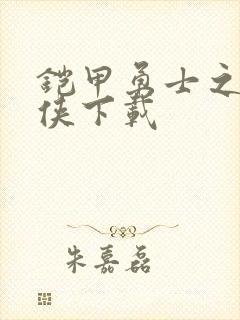 铠甲勇士之
侠下载
朱嘉磊